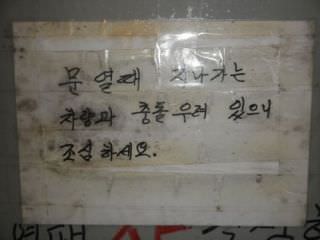 문 열때 지나가는
차량과 충돌우려 있으니
조심하세요.